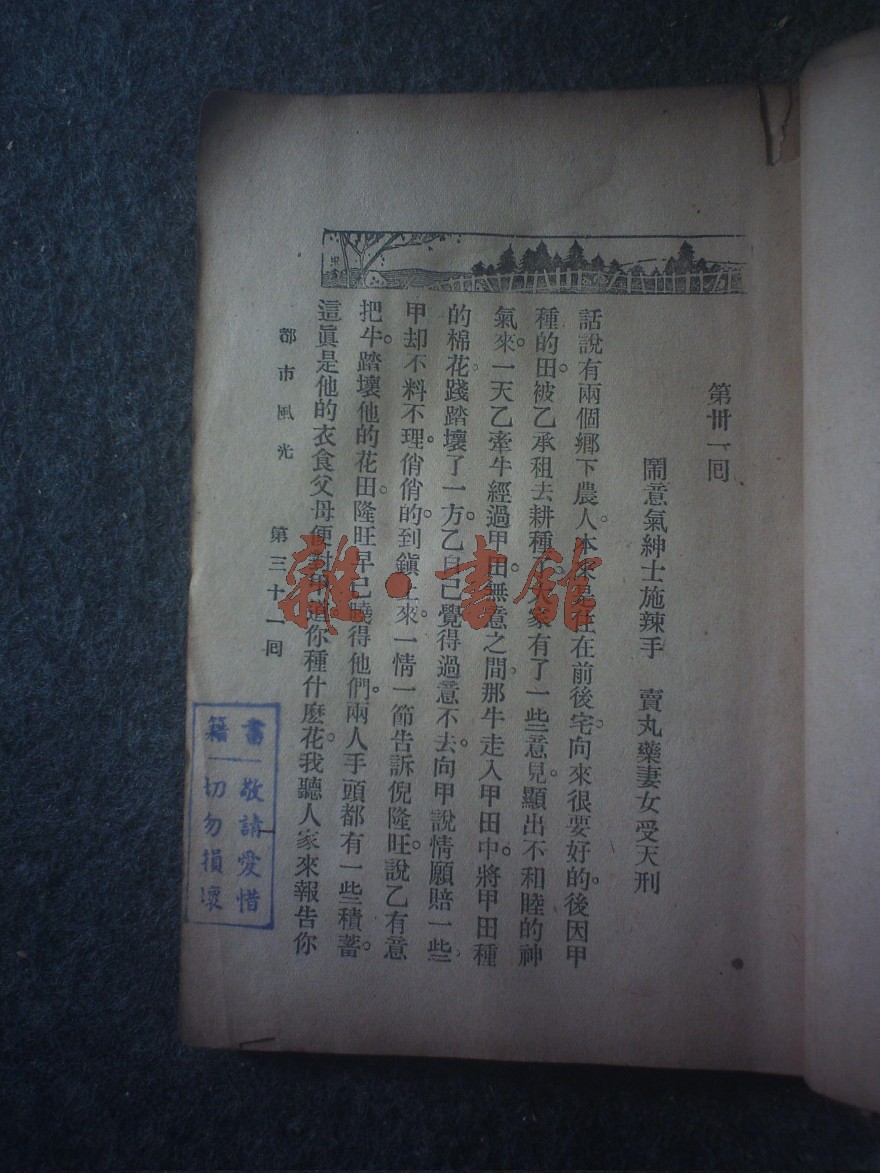 第卅一回
鬧意氣紳士施辣手　賣丸藥妻女受天刑
話說有兩個鄉下農人。本來是住在前後宅。向來很要好的。後因甲
種的田。被乙承租去耕種了。大家有了一些意見。顯出不和睦的神
氣來。一天乙牽牛經過甲田。無意之間。那牛走入甲田中。將甲田種
的棉花。踐踏壞了一方。乙自己覺得過意不去。向甲說情願賠一些。
甲却不料不理。俏俏的到鎭上來。一情一節告訴倪隆旺。說乙有意
把牛踏壞他的花田。隆旺早已曉得他們。兩人手頭都有一些積蓄。
這眞是他的衣食父母。便對甲道。你種什麼花。我聽人家來報告你
都市風光　第三十一回
書籍
敬請愛惜
切勿損壞
雜·書館